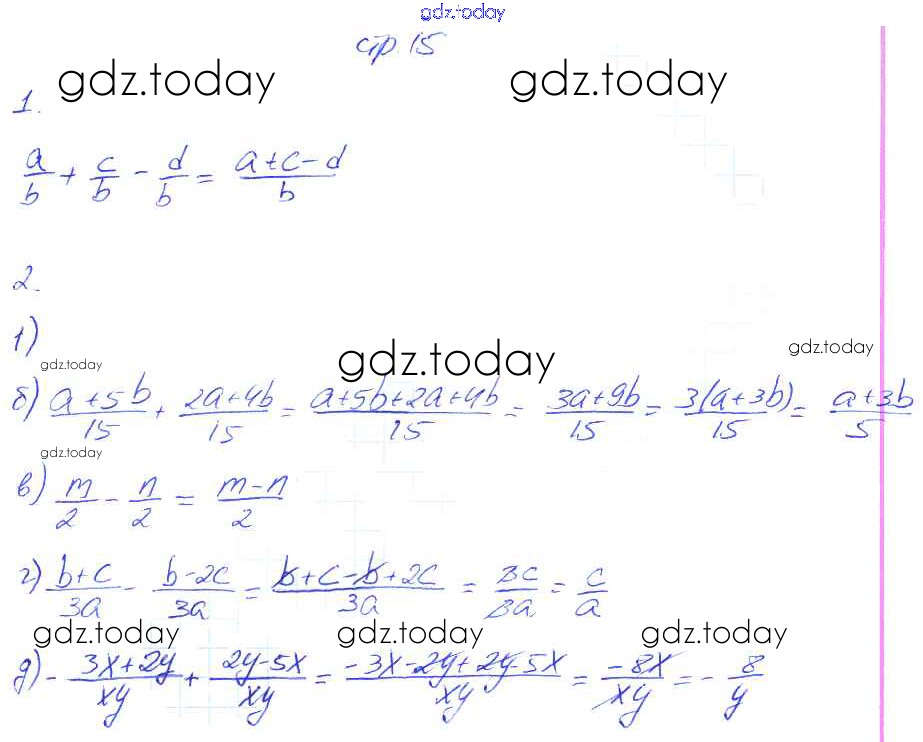 gdz.today
стр. 15
gdz.today gdz.today
1.
a/b + c/b - d/b = (a+c-d)/b
2.
1)
gdz.today gdz.today gdz.today
б) (a+5b)/15 + (2a+4b)/15 = (a+5b+2a+4b)/15 = (3a+9b)/15 = 3(a+3b)/15 = (a+3b)/5
gdz.today
в) m/2 - n/2 = (m-n)/2
г) (b+c)/3a - (b-2c)/3a = (b+c-b+2c)/3a = 3c/3a = c/a
gdz.today gdz.today gdz.today
д) -(3x+2y)/xy + (2y-5x)/xy = (-3x-2y+2y-5x)/xy = -8x/xy = -8/y